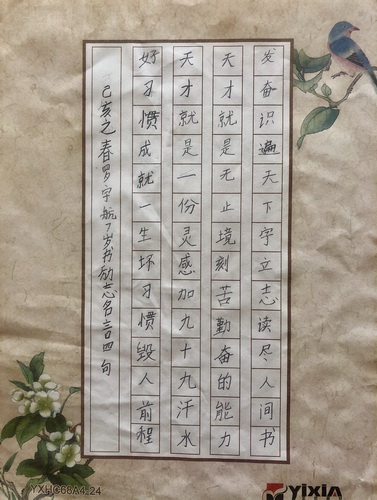 发奋识遍天下字立志读尽人间书
天才就是无止境刻苦勤奋的能力
天才就是一份灵感加九十九汗水
好习惯成就一生坏习惯毁人前程
己亥之春罗宇航7岁书励志名言四句
YXHC68A4-24
YiXiA